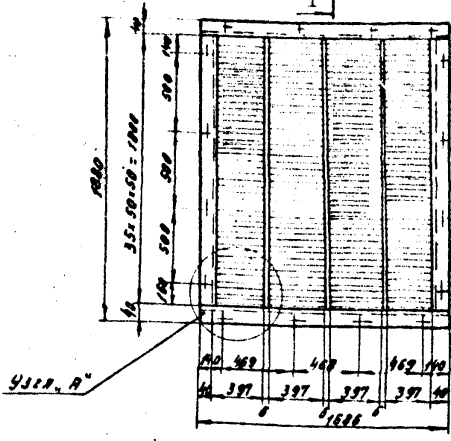 40
140
500
500
500
160
40
35×50×50 = 1800
1880
Узел „А“
140 469 468 469 140
40 397 397 397 397 40
6 6 6
1686